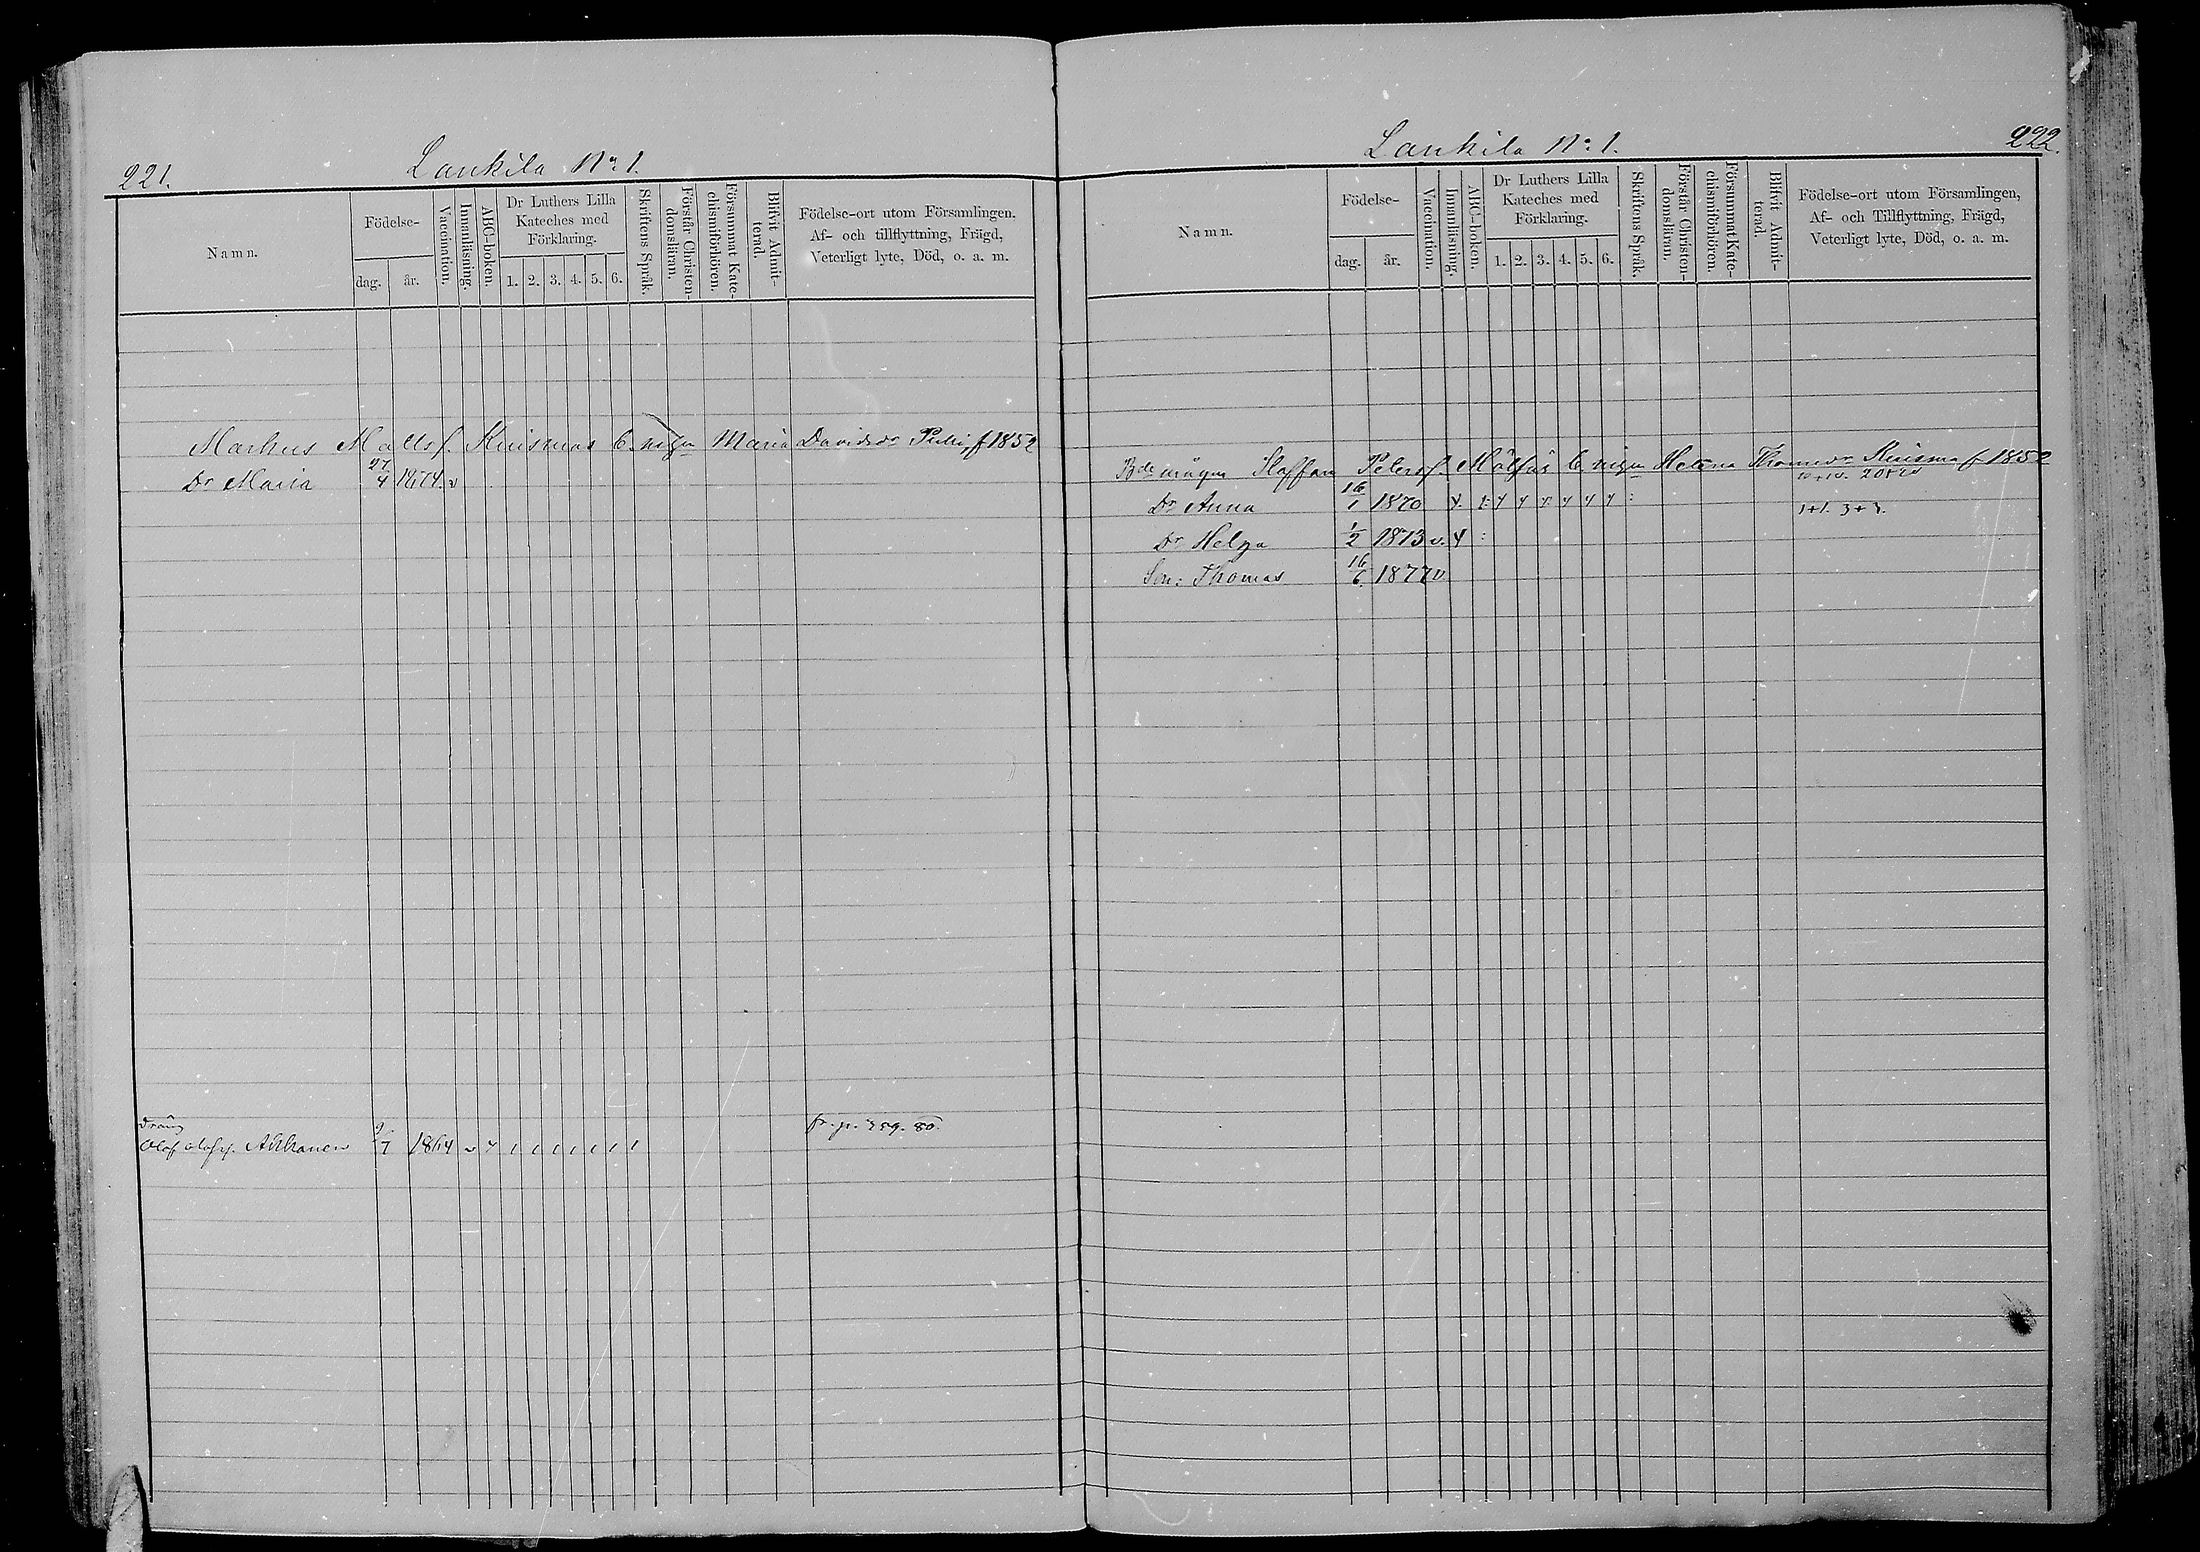 221.
Lankila No 1.
Namn.
Födelse-
dag.
år.
Vaccination.
Innanläsning.
ABC-boken
Dr Luthers Lilla
Kateches med
Förklaring.
1. 2. 3. 4. 5. 6.
Skriftens Språk.
Förstår Christen-
domsläran.
Försummat Kate-
chismiförhören.
Blifvit Admit-
terad.
Födelse-ort utom Församlingen.
Af- och tillflyttning, Frägd,
Veterligt lyte, Död, o. a. m.
Markus Matts f. Kuismas b. m. Maria Davidsdr f. 1852
Dr Maria 27/4 1874. v
Dräng fr. p. 759. 80.
Olof Olofsf. 9/7 1864 v
Lankila No 1.
222.
Namn.
Födelse-
dag.
år.
Vaccination.
Innanläsning.
ABC-boken.
Dr Luthers Lilla
Kateches med
Förklaring.
1. 2. 3. 4. 5. 6.
Skriftens Språk.
Förstår Christen-
domsläran.
Försummat Kate-
chismiförhören.
Blifvit Admit-
terad.
Födelse-ort utom Församlingen,
Af- och Tillflyttning, Frägd,
Veterligt lyte, Död, o. a. m.
mågen Staffan Petersf. b. Helena Thomasdr Kuisma f 1852
Dr Anna 16/1 1870 1+1. 3+3.
Dr Helga 1/2 1873 v.
Son: Thomas 16/6 1877 v